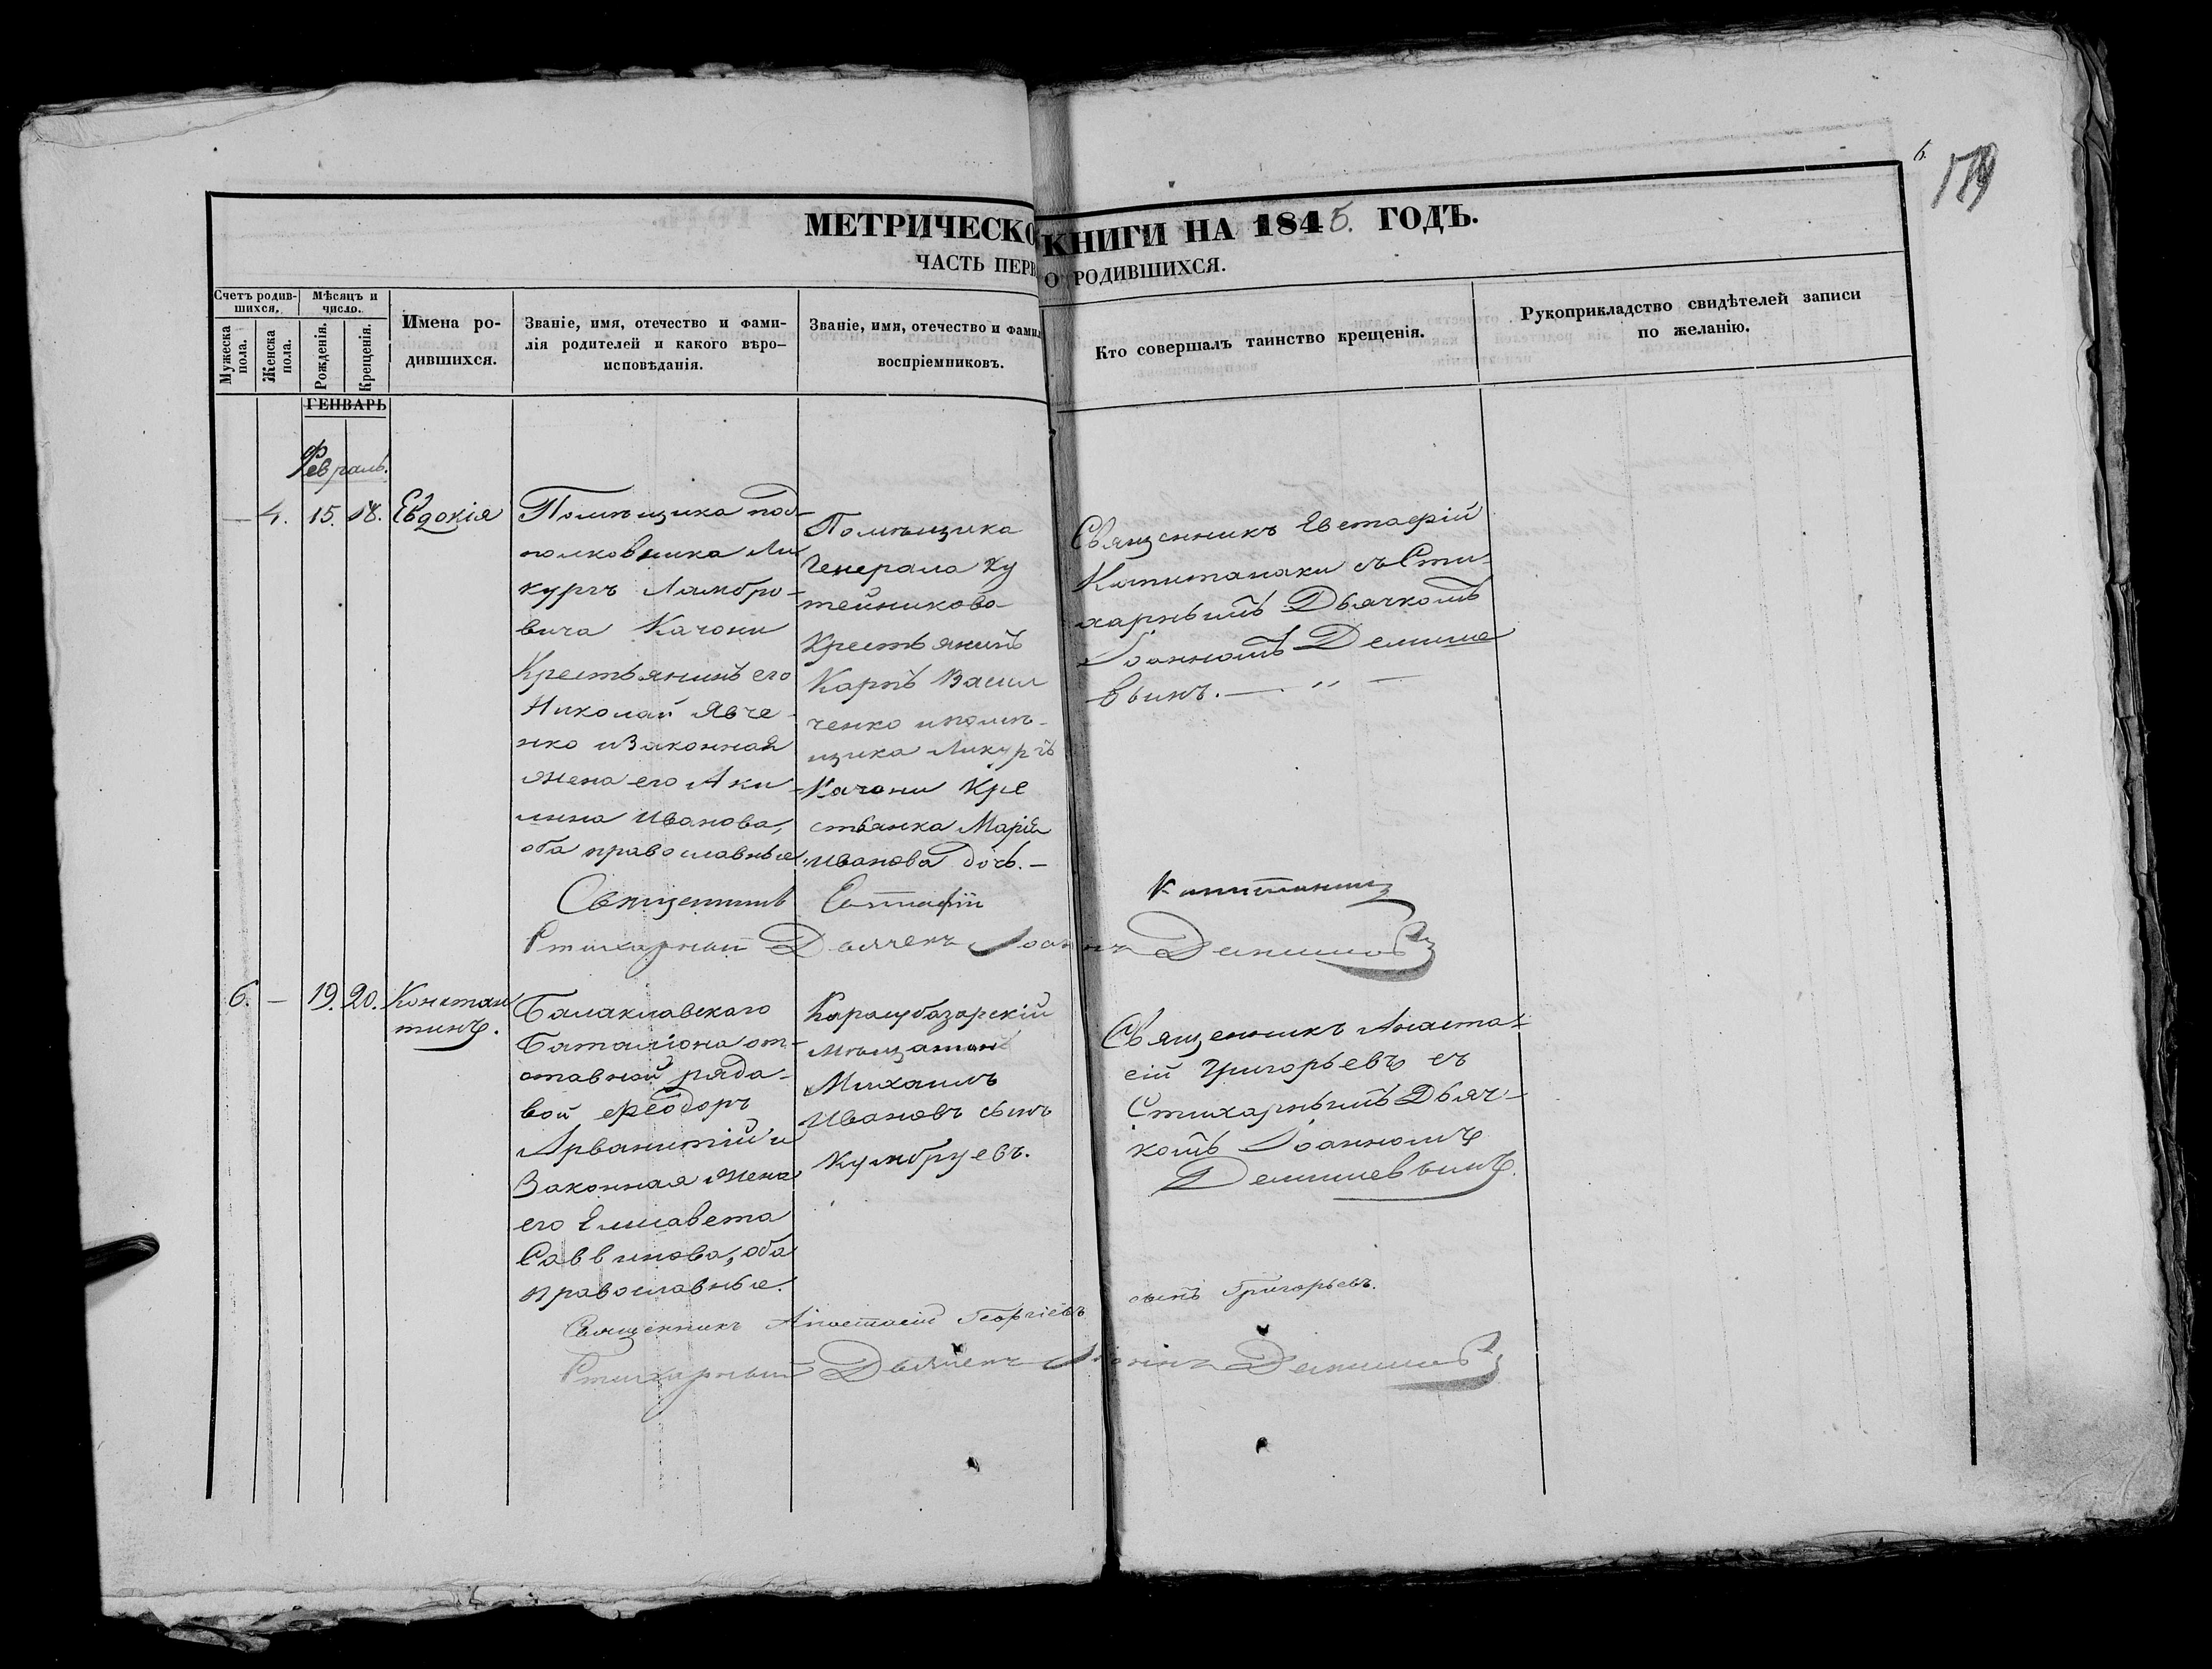 6.
179
МЕТРИЧЕСКО КНИГИ НА 1845. ГОДЪ.
ЧАСТЬ ПЕРВ О РОДИВШИХСЯ.
Счетъ родив-
шихся.
Мужеска
пола.
Женска
пола.
Мѣсяцъ и
число.
Рожденія.
Крещенія.
Имена ро-
дившихся.
Званіе, имя, отечество и фами-
лія родителей и какого вѣро-
исповѣданія.
Званіе, имя, отечество и фамил
воспріемниковъ.
Кто совершалъ таинство крещенія.
Рукоприкладство свидѣтелей записи
по желанію.
ГЕНВАРЬ
Февраль.
— 4. 15. 18. Евдокія
Помѣщика под-
полковника Ли
кургъ Ламбро-
вича Качони
Крестьянинъ его
Николай Явче-
нко и Законная
жена его Аки-
лина Иванова,
оба православные
Помѣщика
Генерала
Крестьянинъ
Карпъ Васил
ченко и помѣ-
щика Ликургъ
Качони Кре
стьянка Марія
Иванова дочь.—
Священникъ Евстафій
Капитанаки съ Сти-
харнымъ Дьячкомъ
Іоанномъ Демише
вымъ. — „ —
Священникъ Евстафій Капитанаки
Стихарный Дьячекъ Іоаннъ Демишевъ
6. — 19. 20. Констан
тинъ.
Балаклавскаго
Баталіона от-
ставной рядо-
вой Феодоръ
Арванитій и
Законная жена
его Елисавета
Саввинова, оба
православные.
Карасубазарскій
мѣщанинъ
Михаилъ
Ивановъ сынъ
Кумбруевъ.
Священникъ Анаста-
сій Григорьевъ съ
Стихарнымъ Дьяч-
комъ Іоанномъ
Демишевымъ.
Священникъ Анастасій Георгіевъ сынъ Григорьевъ.
Стихарный Дьячекъ Іоаннъ Демишевъ